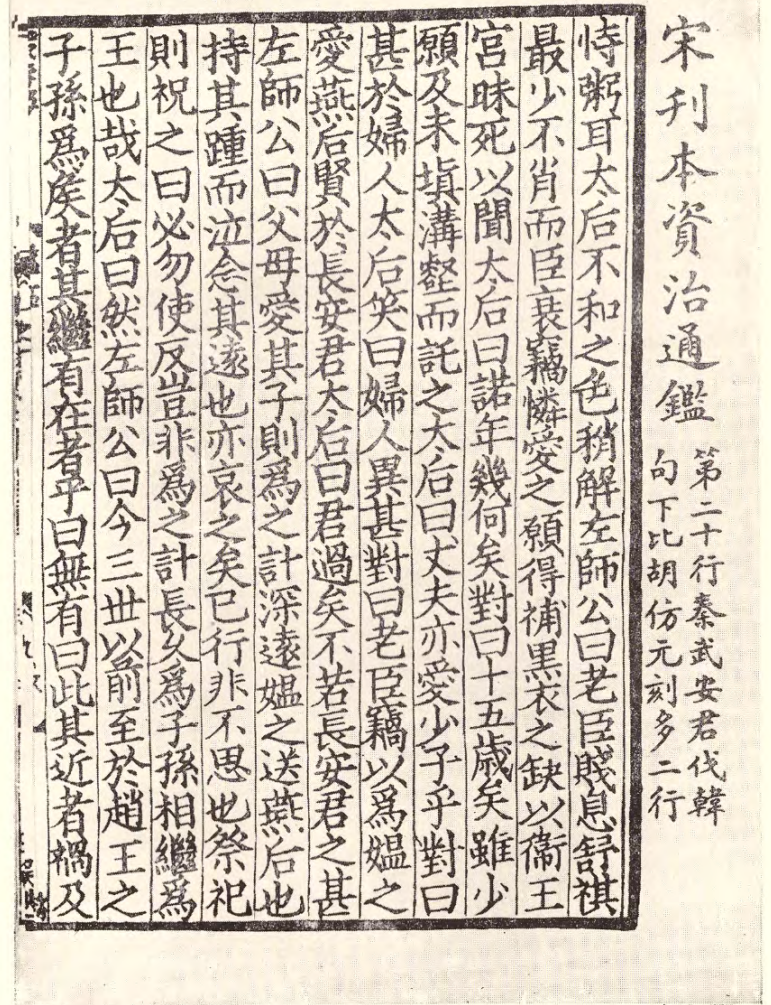 宋刊本資治通鑑
第二十行秦武安君伐韓
句下比胡仿元刻多二行
恃粥耳太后不和之色稍解左師公曰老臣賤息舒祺
最少不肖而臣衰竊憐愛之願得補黒衣之缺以衞王
宮昧死以聞太后曰諾年幾何矣對曰十五歲矣雖少
願及未塡溝壑而託之太后曰丈夫亦愛少子乎對曰
甚於婦人太后笑曰婦人異甚對曰老臣竊以爲媼之
愛燕后賢於長安君太后曰君過矣不若長安君之甚
左師公曰父母愛其子則爲之計深遠媼之送燕后也
持其踵而泣念其遠也亦哀之矣已行非不思也祭祀
則祝之曰必勿使反豈非爲之計長久爲子孫相繼爲
王也哉太后曰然左師公曰今三世以前至於趙王之
子孫爲侯者其繼有在者乎曰無有曰此其近者禍及